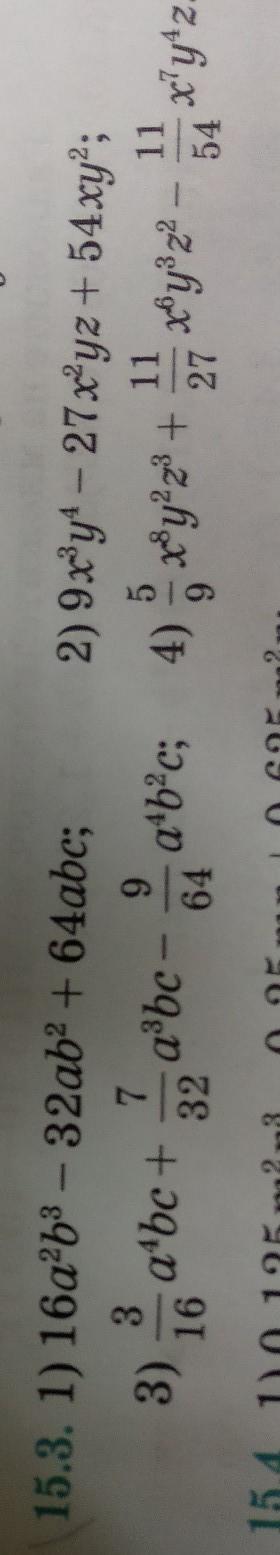 15.3. 1) 16a²b³ − 32ab² + 64abc; 2) 9x³y⁴ − 27x²yz + 54xy²;
3) 3/16 a⁴bc + 7/32 a³bc − 9/64 a⁴b²c; 4) 5/9 x⁸y²z³ + 11/27 x⁶y³z² − 11/54 x⁷y⁴z.
15.4 1) 0,125m²n³